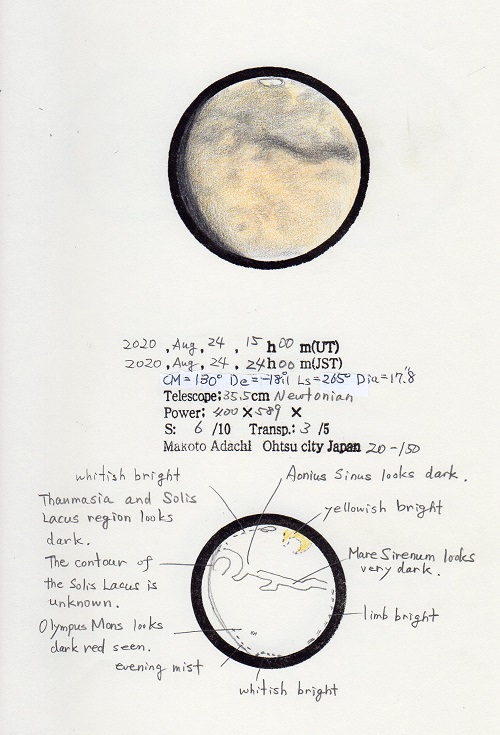 2020 , Aug , 24 , 15 h 00 m(UT)
2020 , Aug , 24 , 24 h 00 m(JST)
CM=130° De=-18.1 Ls=265° Dia=17.″8
Telescope: 35.5cm Newtonian
Power: 400×589 ×
S: 6 /10 Transp.: 3 /5
Makoto Adachi Ohtsu city Japan 20-150
whitish bright
Aonius Sinus looks dark.
Thaumasia and Solis
Lacus region looks
dark.
yellowish bright
The contour of
the Solis Lacus is
unknown.
Mare Sirenum looks
very dark.
Olympus Mons looks
dark red seen.
limb bright
evening mist
whitish bright